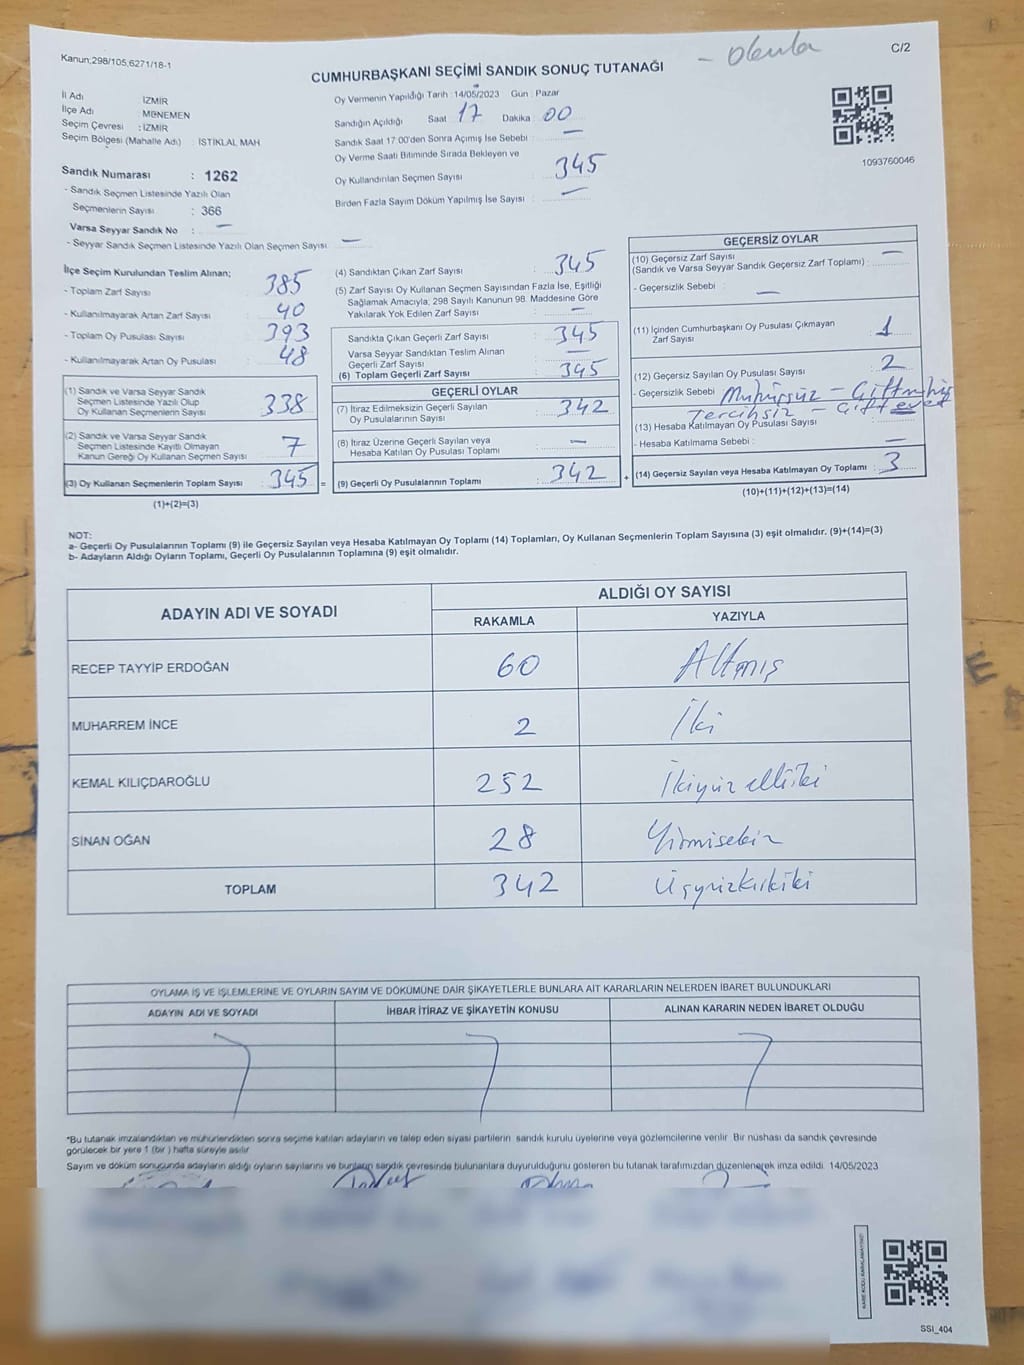 Kanun;298/105,6271/18-1
C/2
CUMHURBAŞKANI SEÇİMİ SANDIK SONUÇ TUTANAĞI
İl Adı İZMİR
İlçe Adı MENEMEN
Seçim Çevresi : İZMİR
Seçim Bölgesi (Mahalle Adı) : İSTİKLAL MAH
Sandık Numarası : 1262
- Sandık Seçmen Listesinde Yazılı Olan
Seçmenlerin Sayısı : 366
Varsa Seyyar Sandık No : —
- Seyyar Sandık Seçmen Listesinde Yazılı Olan Seçmen Sayısı —
Oy Vermenin Yapıldığı Tarih : 14/05/2023 Gün : Pazar
Sandığın Açıldığı Saat 17 Dakika 00
Sandık Saat 17 00'den Sonra Açımış İse Sebebi : —
Oy Verme Saati Bitiminde Sırada Bekleyen ve
Oy Kullandırılan Seçmen Sayısı : 345
Birden Fazla Sayım Döküm Yapılmış İse Sayısı : —
1093760046
İlçe Seçim Kurulundan Teslim Alınan;
- Toplam Zarf Sayısı : 385
- Kullanılmayarak Artan Zarf Sayısı : 40
- Toplam Oy Pusulası Sayısı : 393
- Kullanılmayarak Artan Oy Pusulası : 48
(1) Sandık ve Varsa Seyyar Sandık
Seçmen Listesinde Yazılı Olup
Oy Kullanan Seçmenlerin Sayısı : 338
(2) Sandık ve Varsa Seyyar Sandık
Seçmen Listesinde Kayıtlı Olmayan
Kanun Gereği Oy Kullanan Seçmen Sayısı : 7
(3) Oy Kullanan Seçmenlerin Toplam Sayısı : 345 =
(1)+(2)=(3)
(4) Sandıktan Çıkan Zarf Sayısı : 345
(5) Zarf Sayısı Oy Kullanan Seçmen Sayısından Fazla İse, Eşitliği
Sağlamak Amacıyla; 298 Sayılı Kanunun 98. Maddesine Göre
Yakılarak Yok Edilen Zarf Sayısı : —
Sandıkta Çıkan Geçerli Zarf Sayısı : 345
Varsa Seyyar Sandıktan Teslim Alınan
Geçerli Zarf Sayısı : —
(6) Toplam Geçerli Zarf Sayısı : 345
GEÇERLİ OYLAR
(7) İtiraz Edilmeksizin Geçerli Sayılan
Oy Pusulalarının Sayısı : 342
(8) İtiraz Üzerine Geçerli Sayılan veya
Hesaba Katılan Oy Pusulası Toplamı : —
(9) Geçerli Oy Pusulalarının Toplamı : 342 +
GEÇERSİZ OYLAR
(10) Geçersiz Zarf Sayısı
(Sandık ve Varsa Seyyar Sandık Geçersiz Zarf Toplamı) : —
- Geçersizlik Sebebi : —
(11) İçinden Cumhurbaşkanı Oy Pusulası Çıkmayan
Zarf Sayısı : 1
(12) Geçersiz Sayılan Oy Pusulası Sayısı : 2
- Geçersizlik Sebebi : Mühürsüz – Çift mühür
Tercihsiz – Çift evet
(13) Hesaba Katılmayan Oy Pusulası Sayısı :
- Hesaba Katılmama Sebebi : —
(14) Geçersiz Sayılan veya Hesaba Katılmayan Oy Toplamı : 3
(10)+(11)+(12)+(13)=(14)
NOT:
a- Geçerli Oy Pusulalarının Toplamı (9) ile Geçersiz Sayılan veya Hesaba Katılmayan Oy Toplamı (14) Toplamları, Oy Kullanan Seçmenlerin Toplam Sayısına (3) eşit olmalıdır. (9)+(14)=(3)
b- Adayların Aldığı Oyların Toplamı, Geçerli Oy Pusulalarının Toplamına (9) eşit olmalıdır.
ADAYIN ADI VE SOYADI ALDIĞI OY SAYISI
RAKAMLA YAZIYLA
RECEP TAYYİP ERDOĞAN 60 Altmış
MUHARREM İNCE 2 İki
KEMAL KILIÇDAROĞLU 252 İkiyüz elliiki
SİNAN OĞAN 28 Yirmisekiz
TOPLAM 342 Üçyüzkırkiki
OYLAMA İŞ VE İŞLEMLERİNE VE OYLARIN SAYIM VE DÖKÜMÜNE DAİR ŞİKAYETLERLE BUNLARA AİT KARARLARIN NELERDEN İBARET BULUNDUKLARI
ADAYIN ADI VE SOYADI İHBAR İTİRAZ VE ŞİKAYETİN KONUSU ALINAN KARARIN NEDEN İBARET OLDUĞU
*Bu tutanak imzalandıktan ve mühürlendikten sonra seçime katılan adayların ve talep eden siyasi partilerin sandık kurulu üyelerine veya gözlemcilerine verilir Bir nüshası da sandık çevresinde
görülecek bir yere 1 (bir ) hafta süreyle asılır
Sayım ve döküm sonucunda adayların aldığı oyların sayılarını ve bunların sandık çevresinde bulunanlara duyurulduğunu gösteren bu tutanak tarafımızdan düzenlenerek imza edildi. 14/05/2023
KARE KODU KARALAMAYINIZ!
SSI_404